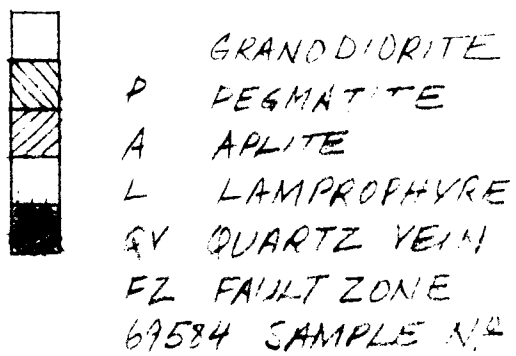 GRANODIORITE
P PEGMATITE
A APLITE
L LAMPROPHYRE
QV QUARTZ VEIN
FZ FAULT ZONE
69584 SAMPLE Nº